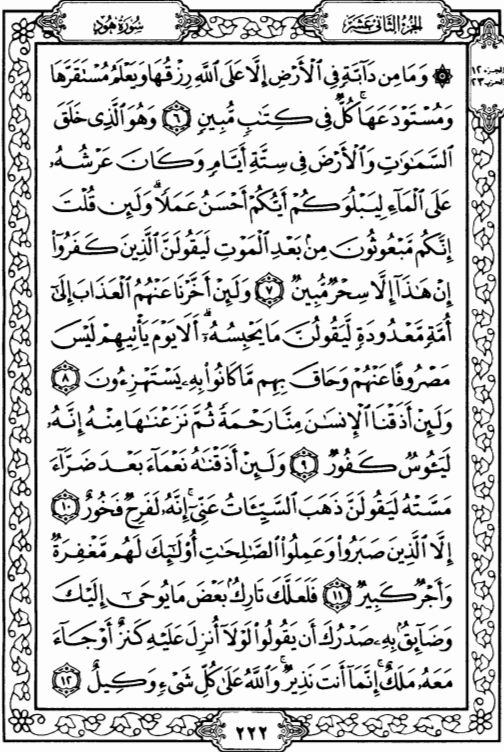 الجزء الثاني عشر
سورة هود
۞ وَمَا مِن دَآبَّةٍ فِى ٱلْأَرْضِ إِلَّا عَلَى ٱللَّهِ رِزْقُهَا وَيَعْلَمُ مُسْتَقَرَّهَا
وَمُسْتَوْدَعَهَا ۚ كُلٌّ فِى كِتَٰبٍ مُّبِينٍ ٦ وَهُوَ ٱلَّذِى خَلَقَ
ٱلسَّمَٰوَٰتِ وَٱلْأَرْضَ فِى سِتَّةِ أَيَّامٍ وَكَانَ عَرْشُهُۥ
عَلَى ٱلْمَآءِ لِيَبْلُوَكُمْ أَيُّكُمْ أَحْسَنُ عَمَلًا ۗ وَلَئِن قُلْتَ
إِنَّكُم مَّبْعُوثُونَ مِنۢ بَعْدِ ٱلْمَوْتِ لَيَقُولَنَّ ٱلَّذِينَ كَفَرُوٓا۟
إِنْ هَٰذَآ إِلَّا سِحْرٌ مُّبِينٌ ٧ وَلَئِنْ أَخَّرْنَا عَنْهُمُ ٱلْعَذَابَ إِلَىٰٓ
أُمَّةٍ مَّعْدُودَةٍ لَّيَقُولُنَّ مَا يَحْبِسُهُۥٓ ۗ أَلَا يَوْمَ يَأْتِيهِمْ لَيْسَ
مَصْرُوفًا عَنْهُمْ وَحَاقَ بِهِم مَّا كَانُوا۟ بِهِۦ يَسْتَهْزِءُونَ ٨
وَلَئِنْ أَذَقْنَا ٱلْإِنسَٰنَ مِنَّا رَحْمَةً ثُمَّ نَزَعْنَٰهَا مِنْهُ إِنَّهُۥ
لَيَـُٔوسٌ كَفُورٌ ٩ وَلَئِنْ أَذَقْنَٰهُ نَعْمَآءَ بَعْدَ ضَرَّآءَ
مَسَّتْهُ لَيَقُولَنَّ ذَهَبَ ٱلسَّيِّـَٔاتُ عَنِّىٓ ۚ إِنَّهُۥ لَفَرِحٌ فَخُورٌ ١٠
إِلَّا ٱلَّذِينَ صَبَرُوا۟ وَعَمِلُوا۟ ٱلصَّٰلِحَٰتِ أُو۟لَٰٓئِكَ لَهُم مَّغْفِرَةٌ
وَأَجْرٌ كَبِيرٌ ١١ فَلَعَلَّكَ تَارِكٌۢ بَعْضَ مَا يُوحَىٰٓ إِلَيْكَ
وَضَآئِقٌۢ بِهِۦ صَدْرُكَ أَن يَقُولُوا۟ لَوْلَآ أُنزِلَ عَلَيْهِ كَنزٌ أَوْ جَآءَ
مَعَهُۥ مَلَكٌ ۚ إِنَّمَآ أَنتَ نَذِيرٌ ۚ وَٱللَّهُ عَلَىٰ كُلِّ شَىْءٍ وَكِيلٌ ١٢
٢٢٢
الجزء ١٢
الحزب ٢٣